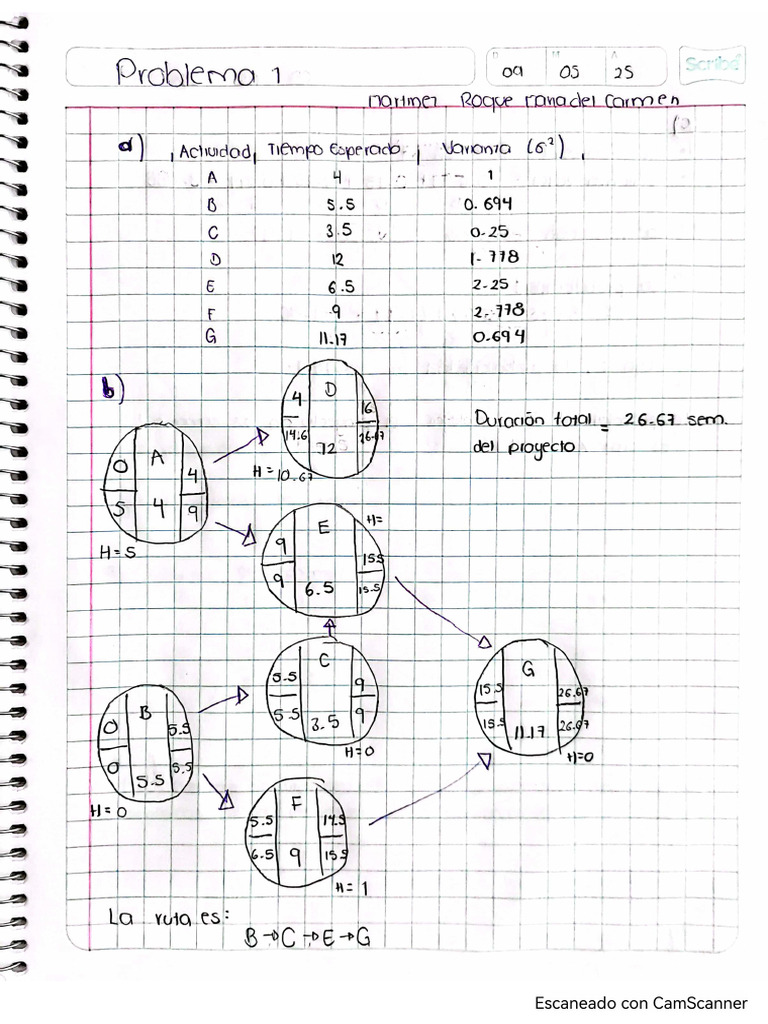 Problema 1
D M A
09 05 25
Scribe
Roque del Carmen
10
a) Actividad Tiempo Esperado Varianza (σ²)
A 4 1
B 5.5 0.694
C 3.5 0.25
D 12 1.778
E 6.5 2.25
F 9 2.778
G 11.17 0.694
b)
D
4 16
14.6 12 26.67
H = 10.67
Duración total = 26.67 sem.
del proyecto
A
0 4
5 4 9
H = 5
E
H=
9 15.5
9 6.5 15.5
C
5.5 9
5.5 3.5 9
H=0
G
15.5 26.67
15.5 11.17 26.67
H=0
B
0 5.5
0 5.5 5.5
H = 0
F
5.5 14.5
6.5 9 15.5
H = 1
La ruta es:
B → C → E → G
Escaneado con CamScanner